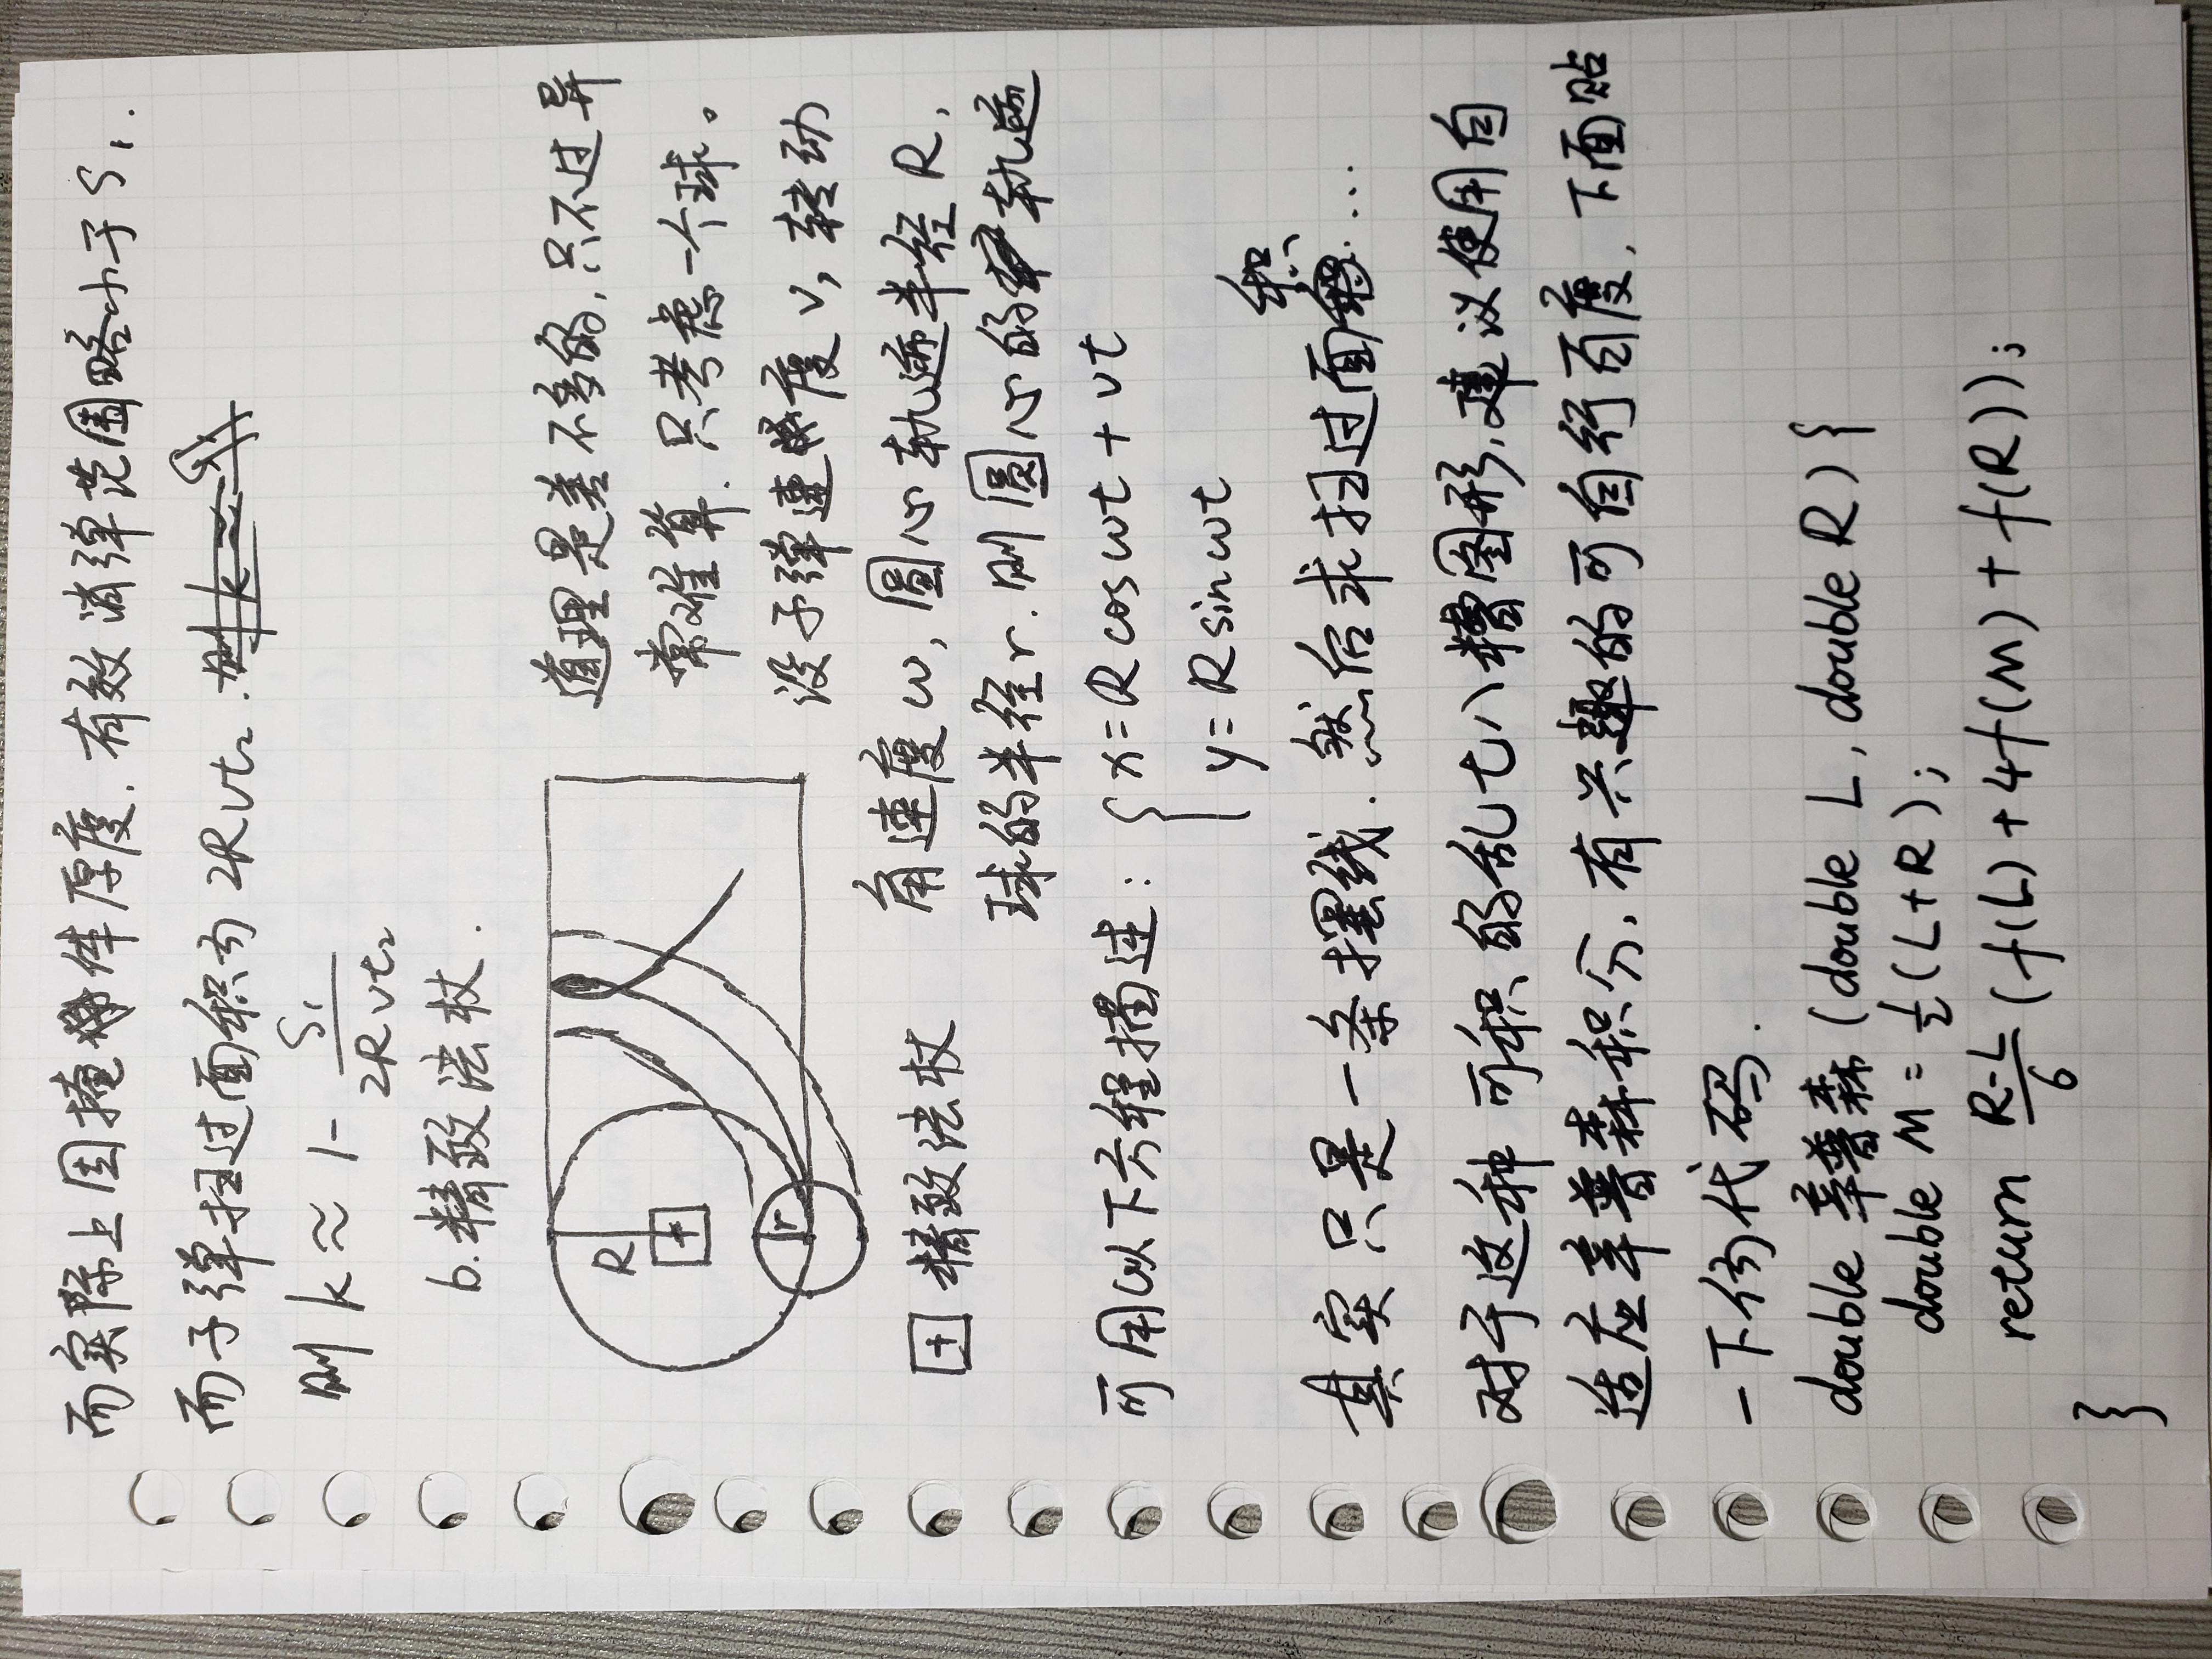 而实际上因掩体厚度，有效消弹范围略小于S₁.
而子弹扫过面积为2Rvt₂.
则 k ≈ 1 - S₁/(2Rvt₂)
b.精致法杖.
R
+
r
道理是差不多的,只不过异
常难算.只考虑一个球。
设子弹速度v,转动
角速度ω,圆心轨迹半径R,
球的半径r.则圆心的轨迹
+ 精致法杖
可用以下方程描述: { x=Rcosωt+vt
y=Rsinωt
其实只是一条摆线.然后求扫过面积...
对于这种可积的乱七八糟图形,建议使用自
适应辛普森积分,有兴趣的可自行百度,下面贴
一下伪代码.
double 辛普森(double L, double R){
double M=½(L+R);
return (R-L)/6 (f(L)+4f(M)+f(R));
}